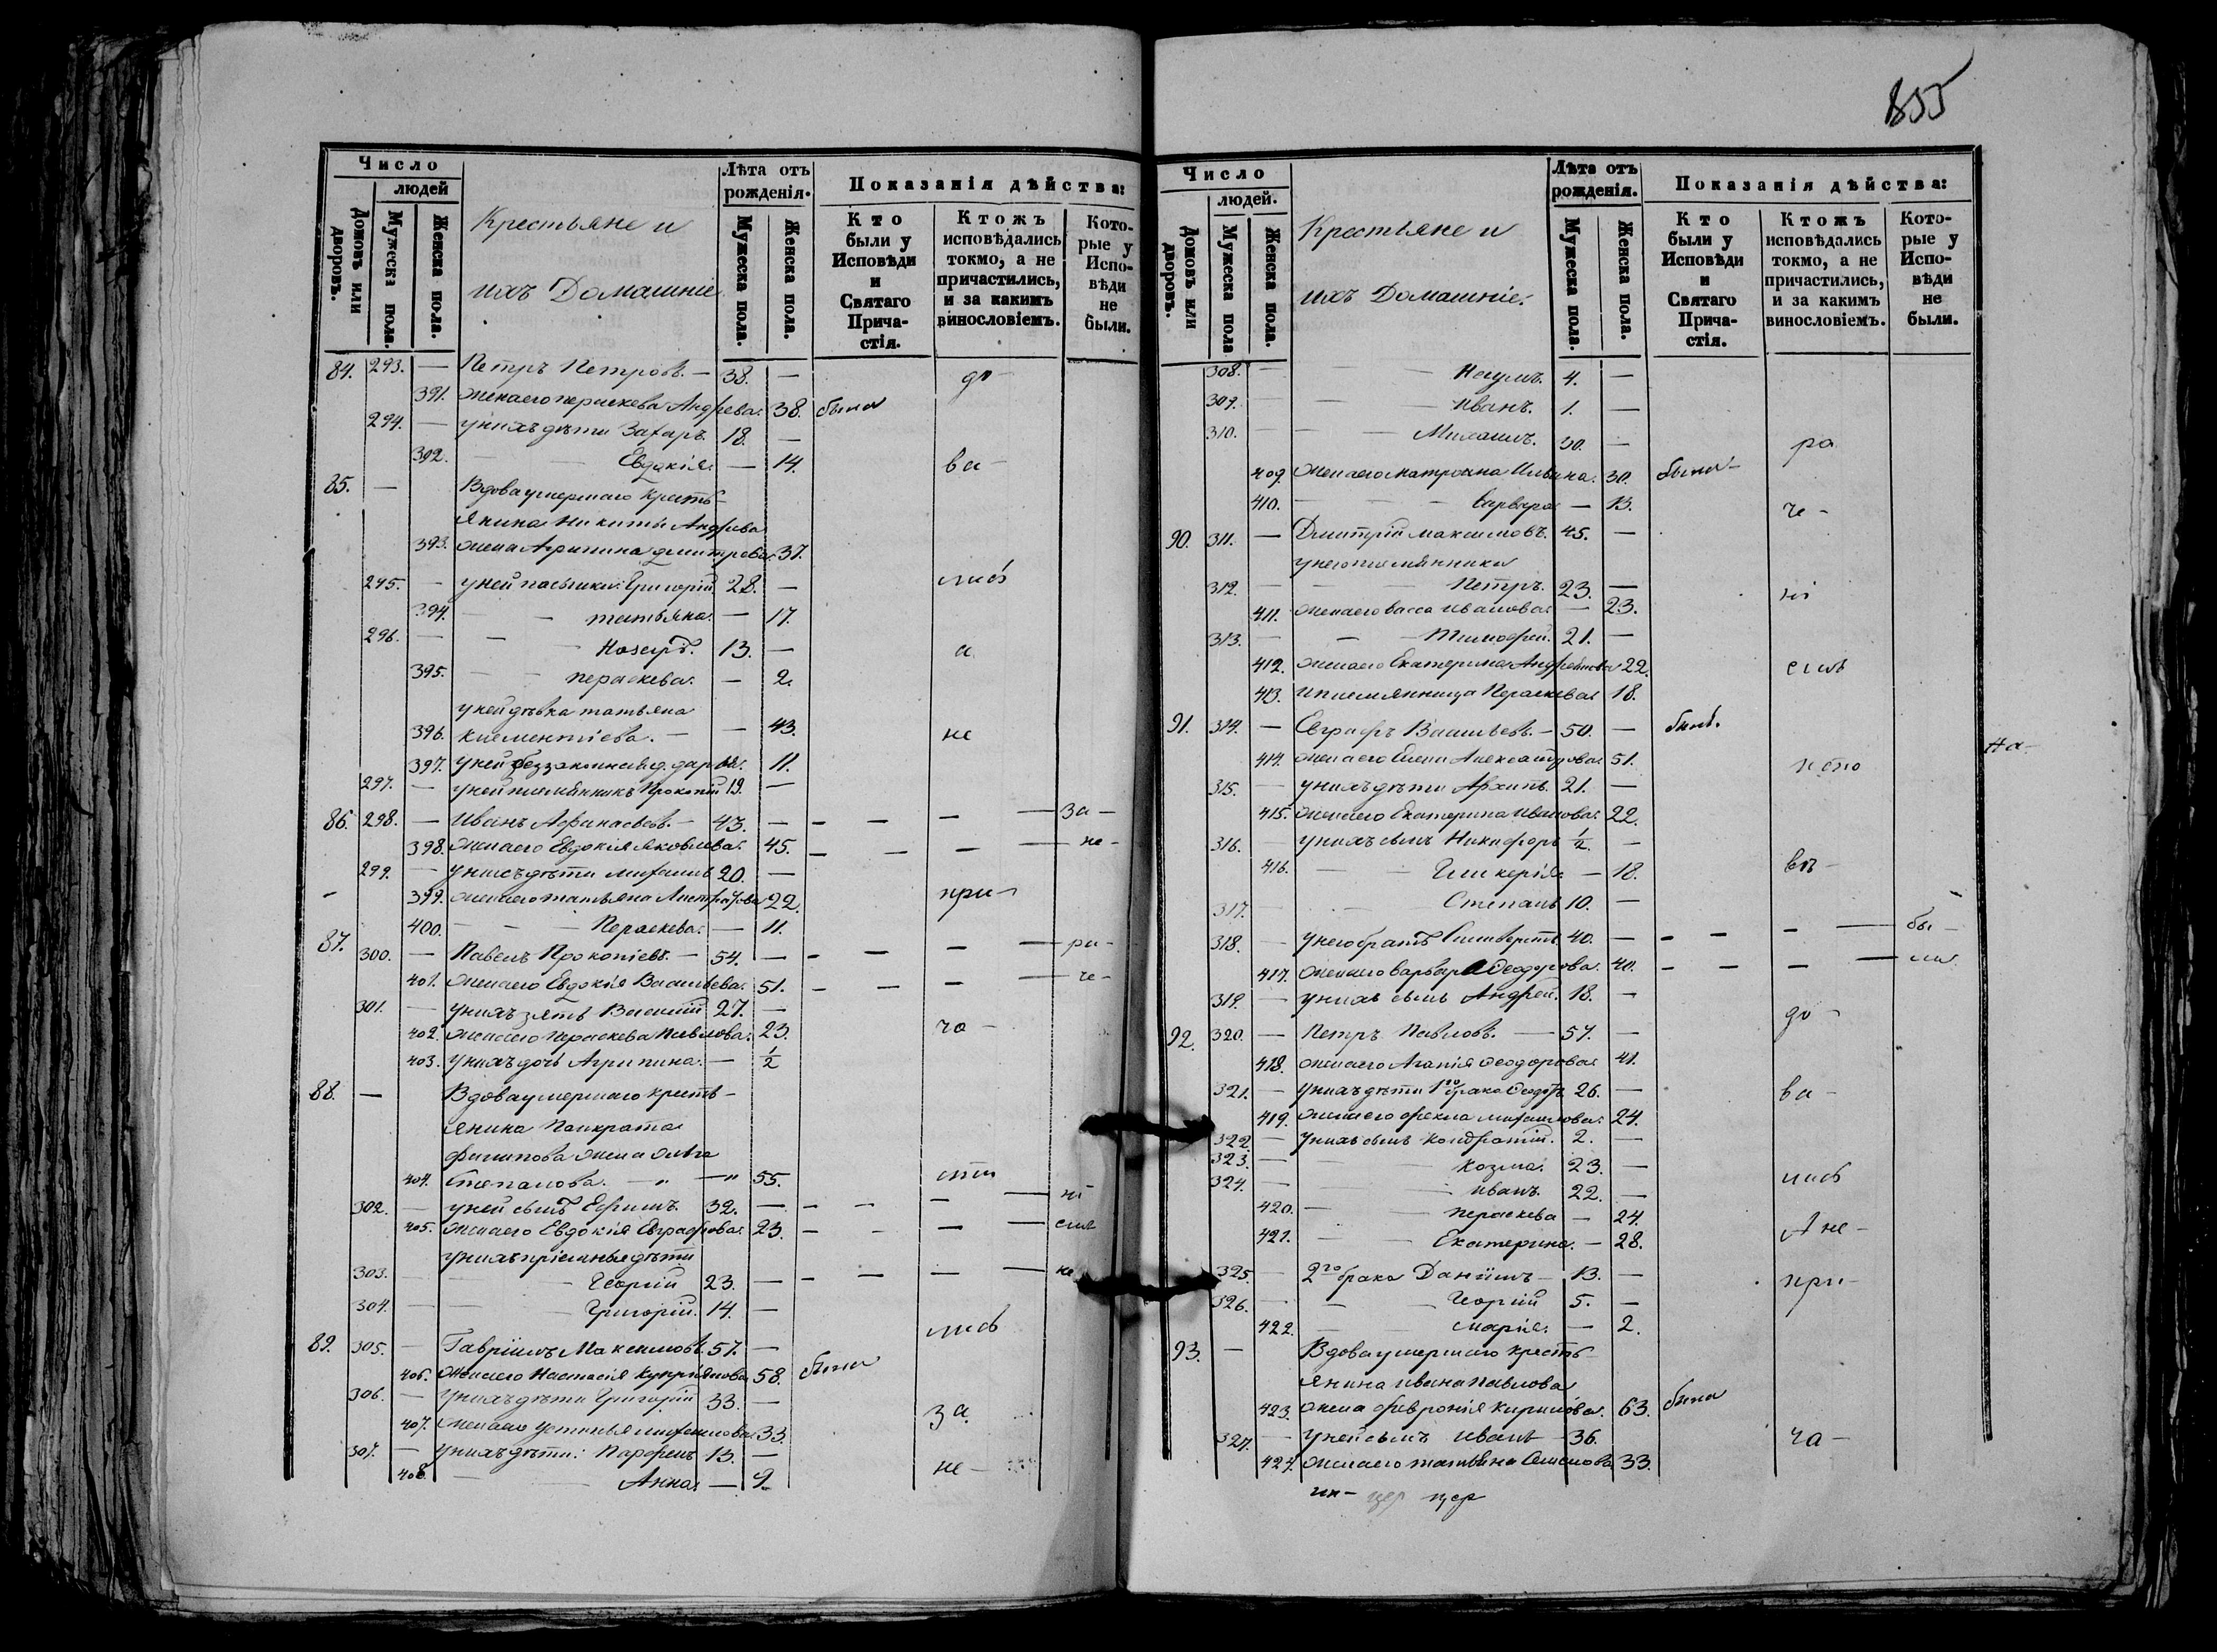 855
Число
людей
Домовъ или дворовъ.
Мужеска пола.
Женска пола.
Крестьяне и
ихъ Домашніе
Лѣта отъ рожденія.
Мужеска пола.
Женска пола.
Показанія дѣйства:
Кто были у Исповѣди и Святаго Прича-стія.
Ктожъ исповѣдались токмо, а не причастились, и за какимъ винословіемъ.
Кото-рые у Испо-вѣди не были.
84. 293. — Петръ Петровъ. — 38. — до-
391. жена его Параскева Андреева. 38. была
294. — у нихъ дѣти Захаръ. 18. —
392. — — Евдокія. — 14. ва-
85. — Вдова умершаго Кресть-
янина Никиты Андреева
393. жена Агрипина Дмитрева. 37.
295. — у ней пасынки: Григорій 28. — лись
394. — — Татьяна. — 17.
296. — — 13. — а
395. — — Параскева. — 2.
у ней дѣвка Татьяна
396. Клементіева. — — 43. не
397. у ней 11.
297. — у ней племянникъ Прокопій 19. —
86. 298. — Иванъ Афанасьевъ. — 43. — — — — — за-
398. жена его Евдокія Яковлева. 45. — — — — не-
299. — у нихъ дѣти Михаилъ 20. —
399. жена его Татьяна 22. при-
400. — — — Параскева. — 11.
87. 300. — Павелъ Прокопіевъ. — 54. — — — — — ра-
401. жена его Евдокія Васильева. 51. — — — — че-
301. — у нихъ зять Василій 27. —
402. жена его Параскева Павлова. 23. ча-
403. у нихъ дочь Агрипина. — 1/2
88. — Вдова умершаго Кресть-
янина Панкрата
Филипова жена Ольга
404. Степанова. — „ — „ 55. сти
302. — у ней сынъ Ефимъ. 32. — — — — — ні
405. жена его Евдокія Евграфова. 23. — — — — емъ
у нихъ пріемные дѣти
303. — — — Георгій 23. — — — — — не
304. — — — Григорій. 14. —
лись
89. 305. — Гавріилъ Максимовъ. 57. —
406. жена его Настасія Купріянова 58. была
306. — у нихъ дѣти Григорій 33. — за
407. жена его Устинья Михаилова. 33.
307. — у нихъ дѣти: Парфенъ 13. —
408. — — Анна. — 9. не-
Число
людей.
Домовъ или дворовъ.
Мужеска пола
Женска пола.
Крестьяне и
ихъ Домашніе.
Лѣта отъ рожденія.
Мужеска пола.
Женска пола.
Показанія дѣйства:
Кто были у Исповѣди и Святаго Прича-стія.
Ктожъ исповѣдались токмо, а не причастились, и за какимъ винословіемъ.
Кото-рые у Испо-вѣди не были.
308. — — — Наумъ. 4. —
309. — — — Иванъ. 1. —
310. — — — Михаилъ. 30. — ра
409. жена его Матрона Ильина. 30. была-
410. — — — Варвара — 13. че-
90. 311. — Дмитрій Максимовъ. 45. —
у него племянники
312. — — — Петръ. 23. — ні
411. жена его Васса Иванова. — 23.
313. — — — Тимофей. 21. —
412. жена его Екатерина Андреянова 22. емъ
413. и племянница Параскева. 18.
91. 314. — Евграфъ Васильевъ. — 50. — былъ.
На-
414. жена его Елена Александрова. 51.
315. — у нихъ дѣти Архипъ. 21. —
415. жена его Екатерина Иванова. 22.
316. — у нихъ сынъ Никифоръ 1/2. —
416. — — Гликерія. — 18. въ-
317. — — Степанъ 10. —
318. — у него братъ Сильверстъ. 40. — — — — — бы-
417. жена его Варвара Феодорова. 40. — — — — ли
319. — у нихъ сынъ Андрей. 18. — до-
92. 320. — Петръ Павловъ. — 57. —
418. жена его Агапія Феодорова. 41.
321. — у нихъ дѣти 1го брака Феодоръ 26. — ва-
419. жена его Фекла Михаилова. 24.
322. — у нихъ сынъ Кондратій. 2. —
323. — — Козма. 23. —
324. — — Иванъ. 22. — лись
420. — — Параскева — 24.
421. — — Екатерина. — 28. А не-
325. — 2го брака Даніилъ — 13. — при-
326. — — Георгій 5. —
422. — — Марія. — 2.
93. — Вдова умершаго Кресть-
янина Ивана Павлова
423. жена Февронія Кирилова. 63. была
327. — у ней сынъ Иванъ — 36. ча-
424. жена его Татьяна Семенова 33.